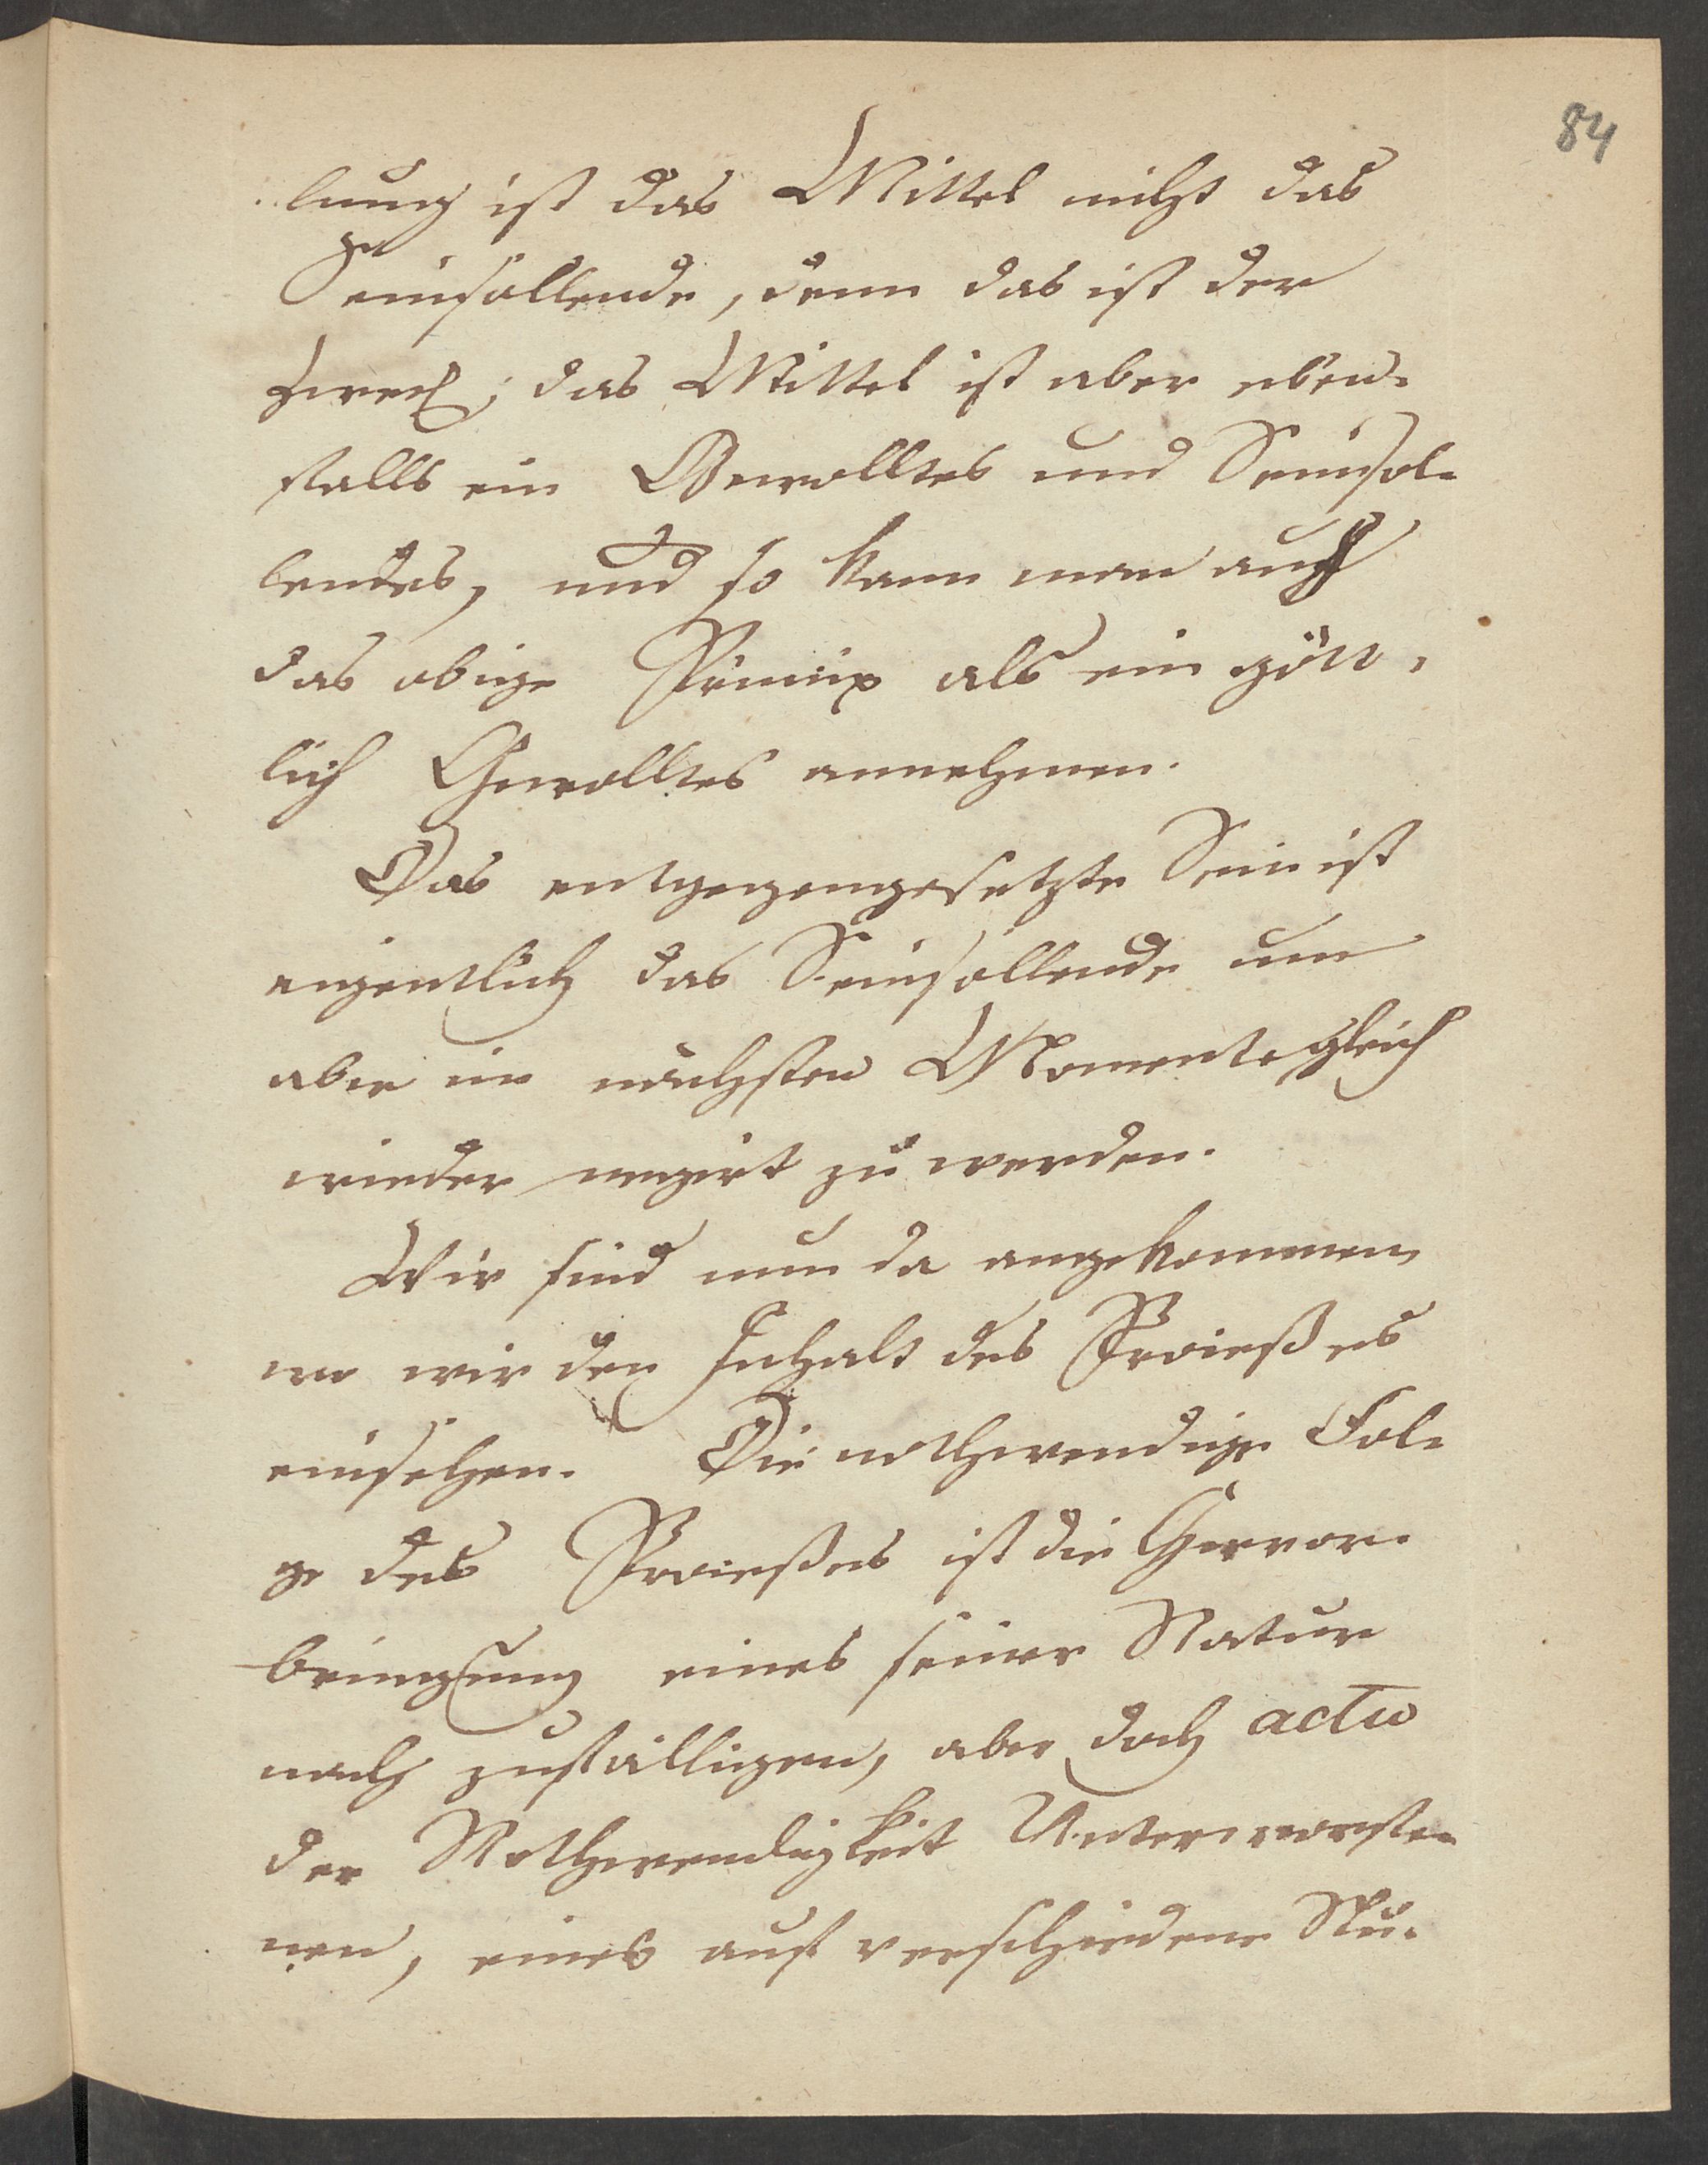 84
lung ist das Mittel nicht das
Seinsollende, denn das ist der
Zweck; das Mittel ist aber eben-
falls ein Gewolltes und Seinsol-
lendes, und so kann man auch
das obige Prinzip als ein gött-
lich Gewolltes annehmen.
Das entgegengesetzte Sein ist
eigentlich das Seinsollende um
aber im nächsten Momente gleich
wieder negirt zu werden.
Wir sind nun da angekommen,
wo wir den Inhalt des Proceßes
einsehen. Die nothwendige Fol-
ge des Proceßes ist die Hervor-
bringung eines seiner Natur
nach zufälligen, aber doch actu
der Nothwendigkeit Unterworfe-
nen, eines auf verschiedene Stu-